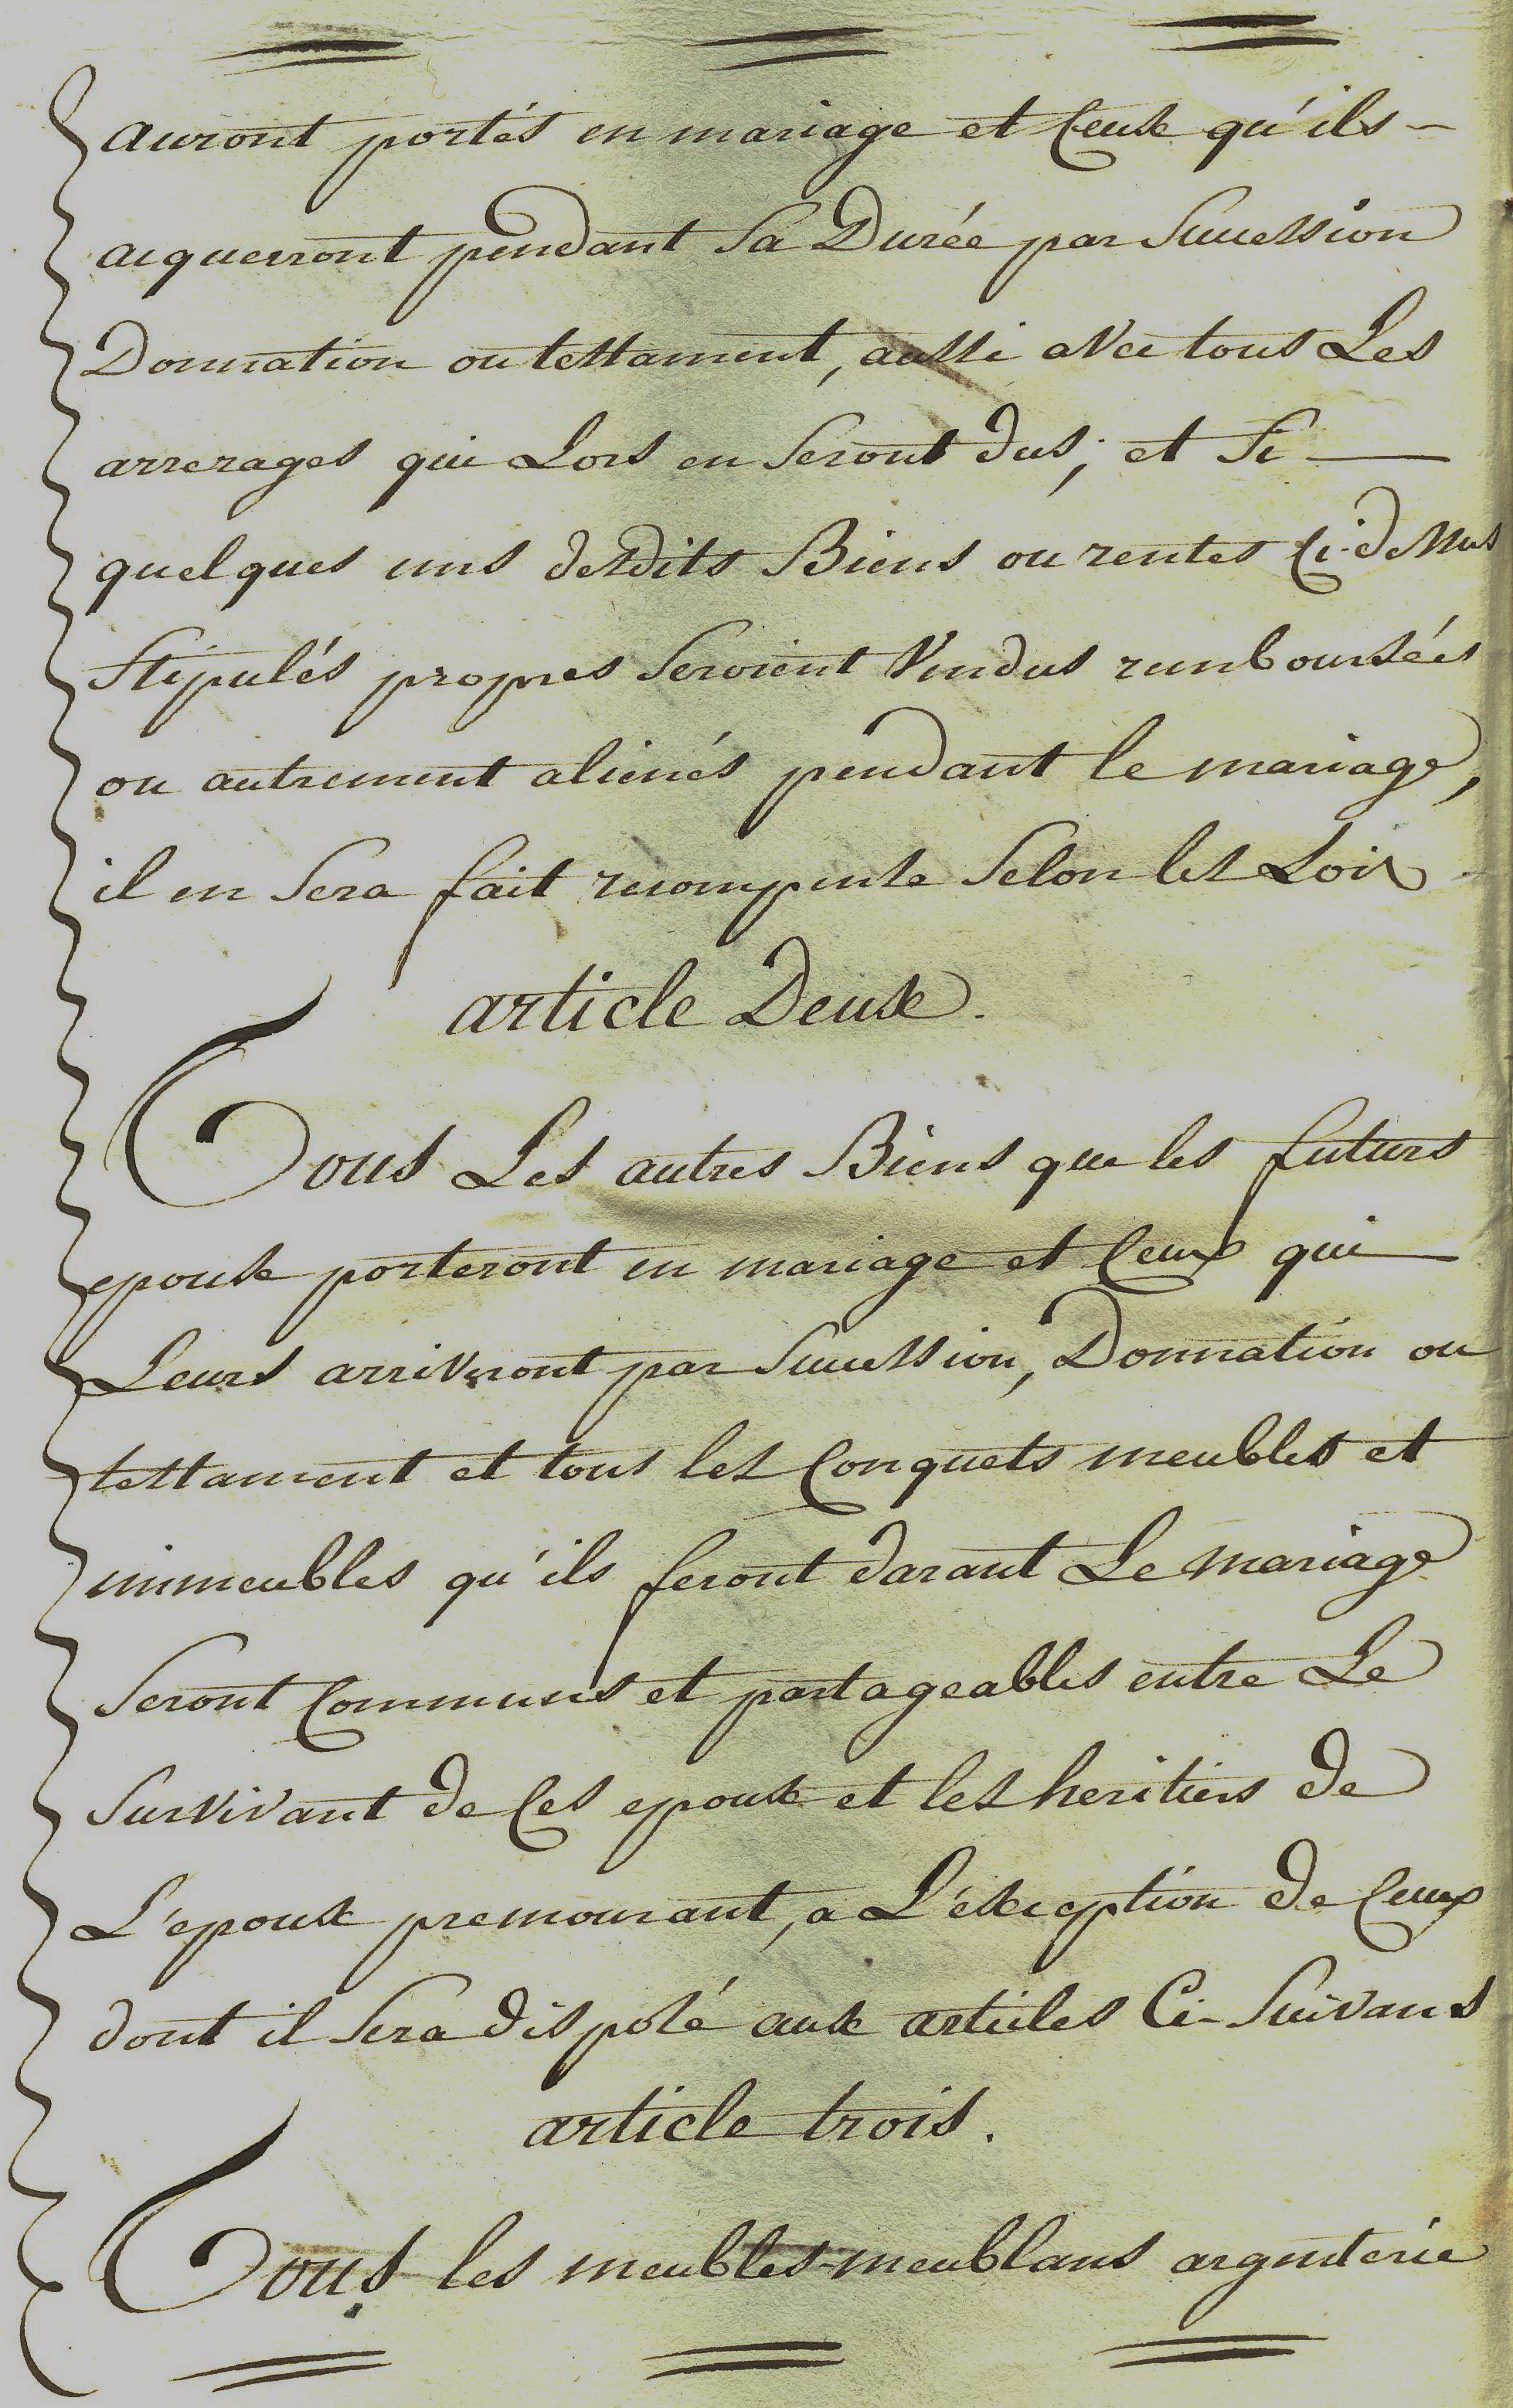 auront portés en mariage et Ceux qu'ils -
acquerront pendant Sa Durée par Succession
Donnation ou testament, aussi avec tous Les
arrerages qui Lors en Seront dus; et Si —
quelques uns desdits Biens ou rentes Ci-dessus
Stipulés propres Seroient Vendus remboursées
ou autrement aliénés pendant le mariage,
il en Sera fait recompense Selon les Loix
article Deux.
Tous Les autres Biens que les futurs
epoux porteront en mariage et Ceux qui —
Leurs arriveront par Succession, Donnation ou
testament et tous les Conquets meubles et
immeubles qu'ils feront darant Le mariage
Seront Communs et partageables entre Le
Survivant de Ces epoux et les heritiers de
L'epoux premourant, a L'éxception de Ceux
dont il Sera disposé aux articles Ci-Suivans
article trois.
Tous les meubles-meublans argenterie